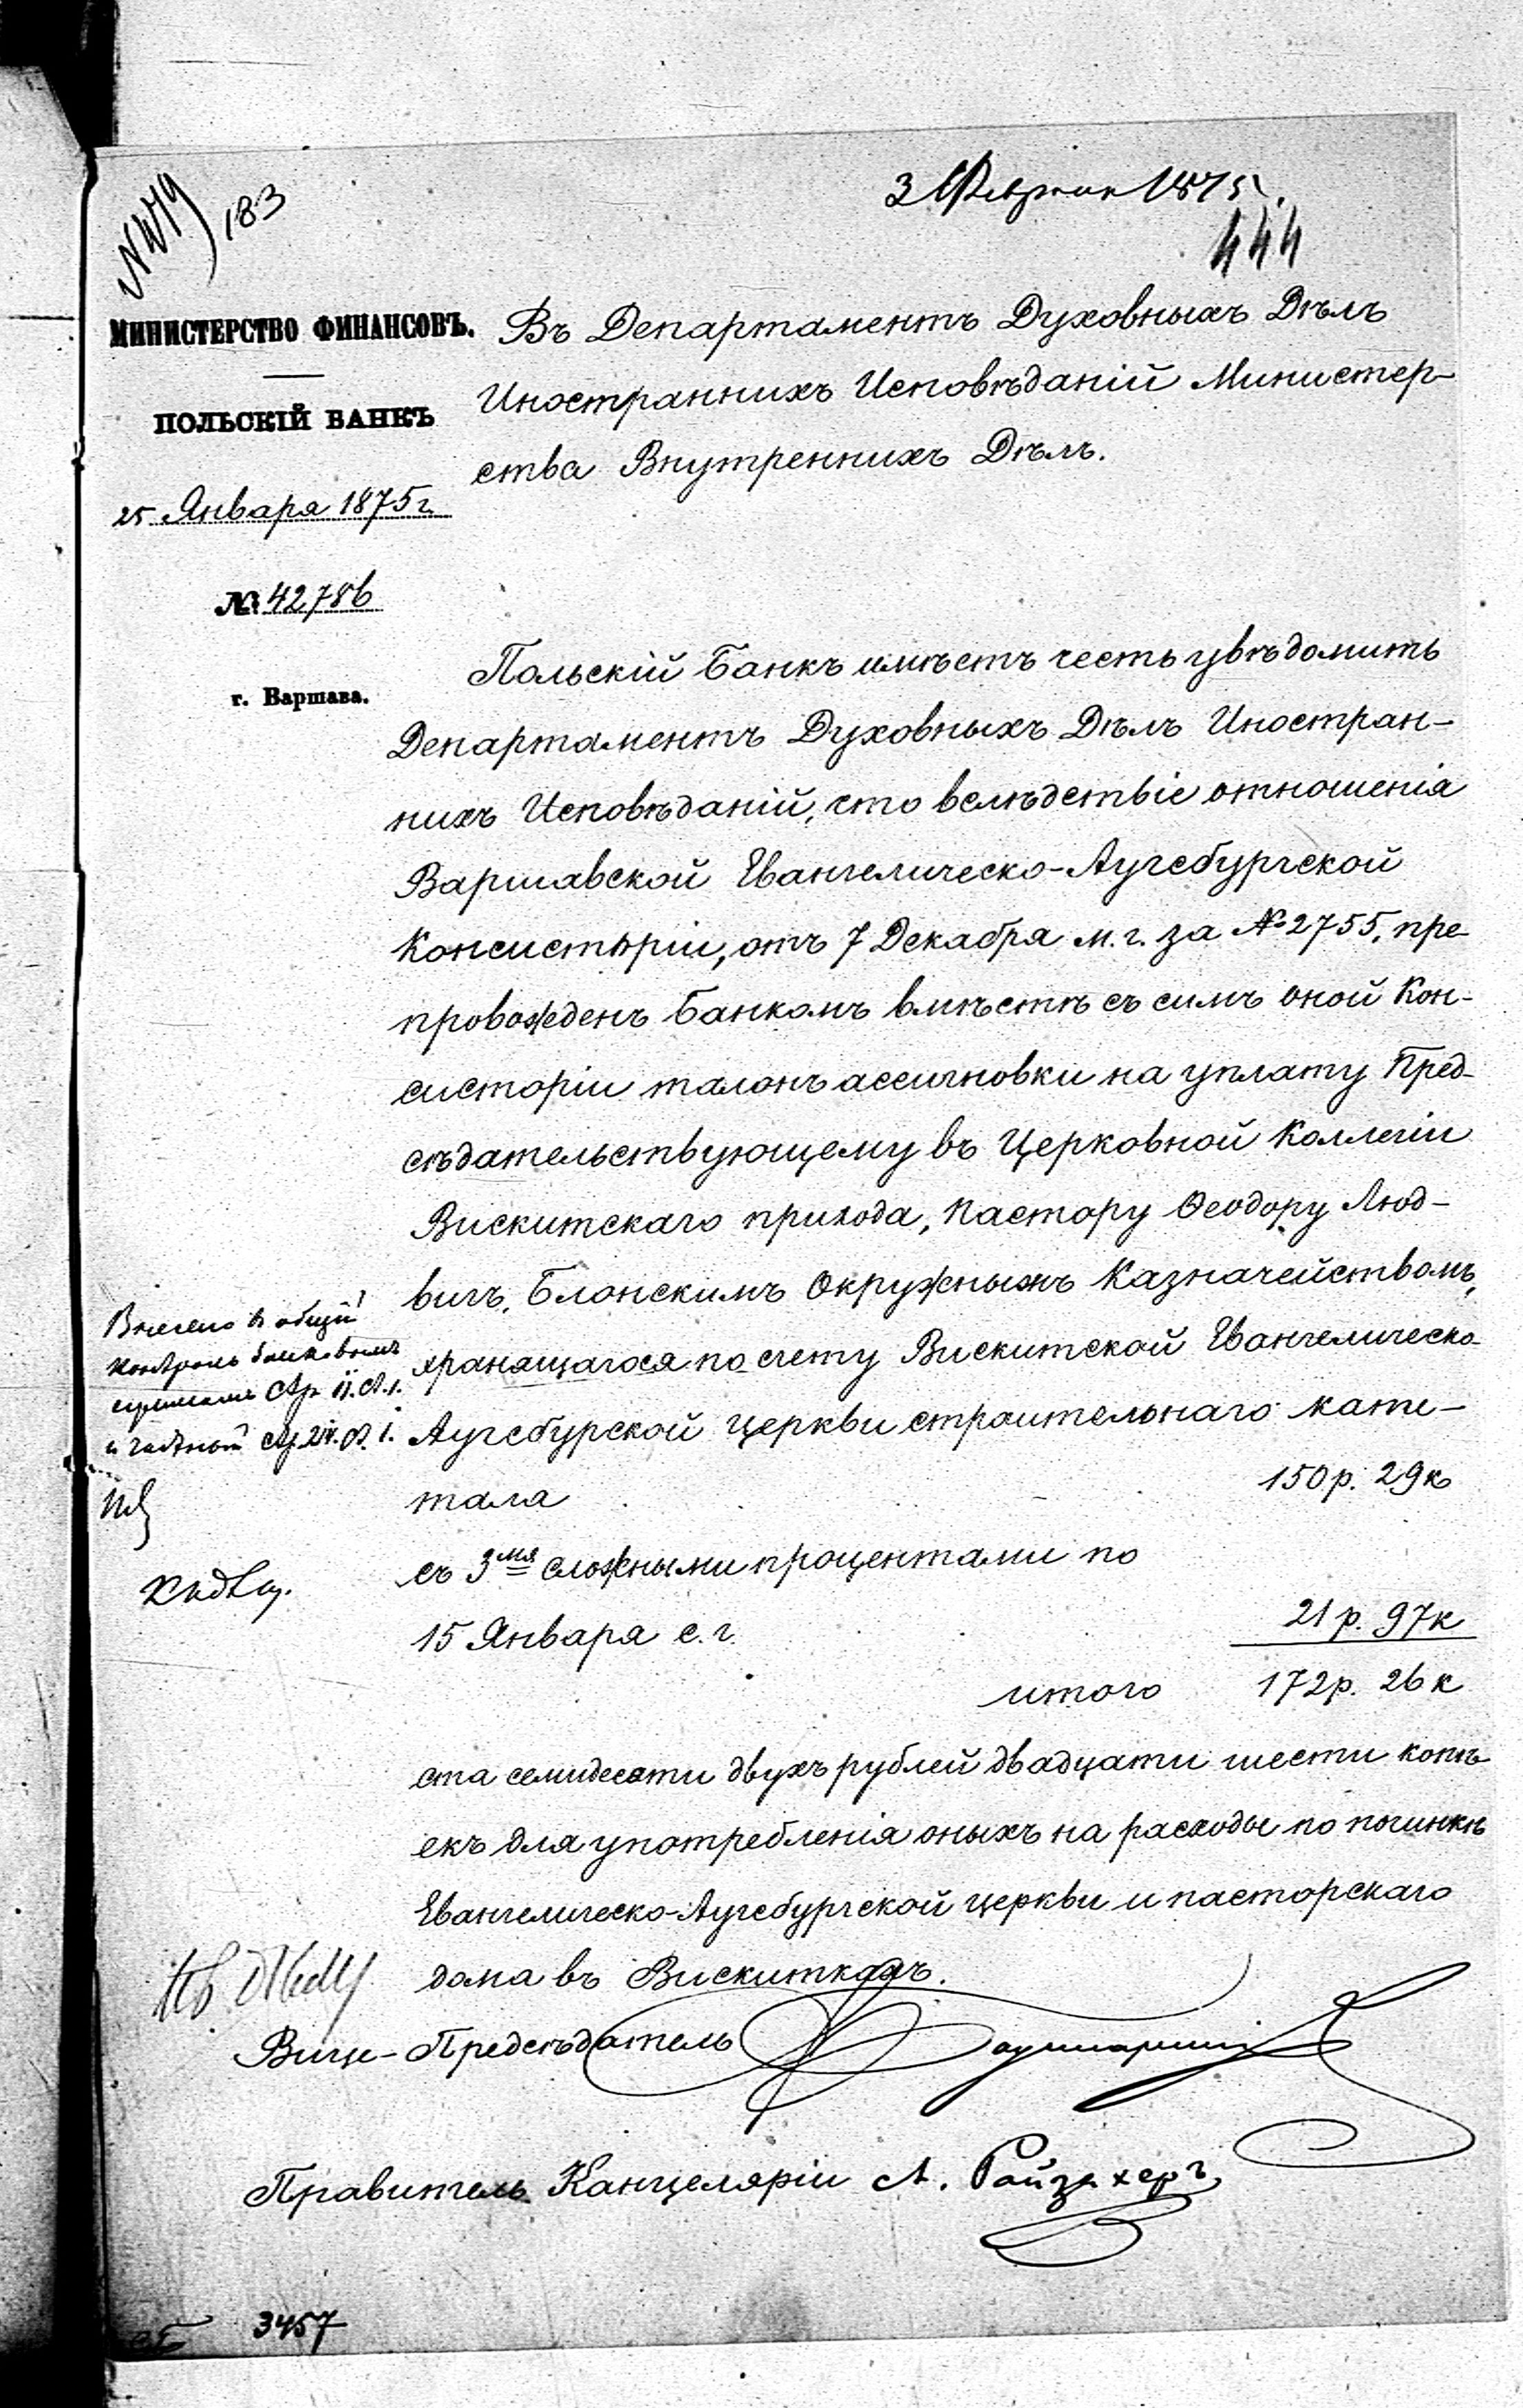 3 Февраля 1875.
183
444
МИНИСТЕРСТВО ФИНАНСОВЪ.
ПОЛЬСКІЙ БАНКЪ
25 Января 1875 г.
№ 42786
г. Варшава.
Въ Департаментъ Духовныхъ Дѣлъ
Иностранныхъ Исповѣданій Министер-
ства Внутреннихъ Дѣлъ.
Польскій Банкъ имѣетъ честь увѣдомить
Департаментъ Духовныхъ Дѣлъ Иностран-
ныхъ Исповѣданій, что вслѣдствіе отношенія
Варшавской Евангелическо-Аугсбургской
Консисторіи, отъ 7 Декабря м. г. за № 2755, пре-
провожденъ Банкомъ вмѣстѣ съ симъ оной Кон-
систоріи талонъ ассигновки на уплату Пред-
сѣдательствующему въ Церковной Коллегіи
Вискитскаго прихода, Пастору Ѳеодору Люд-
вигъ, Блонскимъ Окружнымъ Казначействомъ,
хранящагося по счету Вискитской Евангелическо-
Аугсбурской церкви строительнаго капи-
тала 150 р. 29 к
съ 3мя сложными процентами по
15 Января с. г. 21 р. 97 к
итого 172 р. 26 к
ста семидесяти двухъ рублей двадцати шести копѣ-
екъ для употребленія оныхъ на расходы по починкѣ
Евангелическо-Аугсбургской церкви и пасторскаго
дома въ Вискиткахъ.
Внесено въ общій
контроль
Вице-Предсѣдатель
Правитель Канцеляріи А.
3457